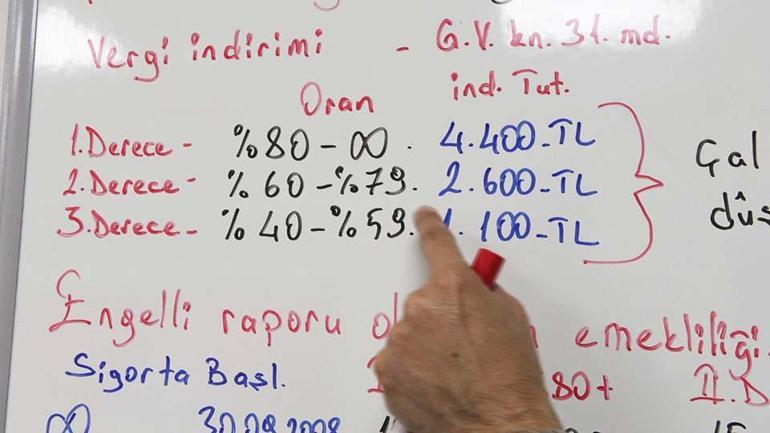 Vergi indirimi - G.V. kn. 31. md.
Oran ind. Tut.
1. Derece - %80 - ∞ . 4.400-TL
2. Derece - %60 - %79. 2.600-TL
3. Derece - %40 - %59. 1.100-TL
Çal
düş
Engelli raporu emekliliği
Sigorta Başl. 80+
∞ 30.09.2008